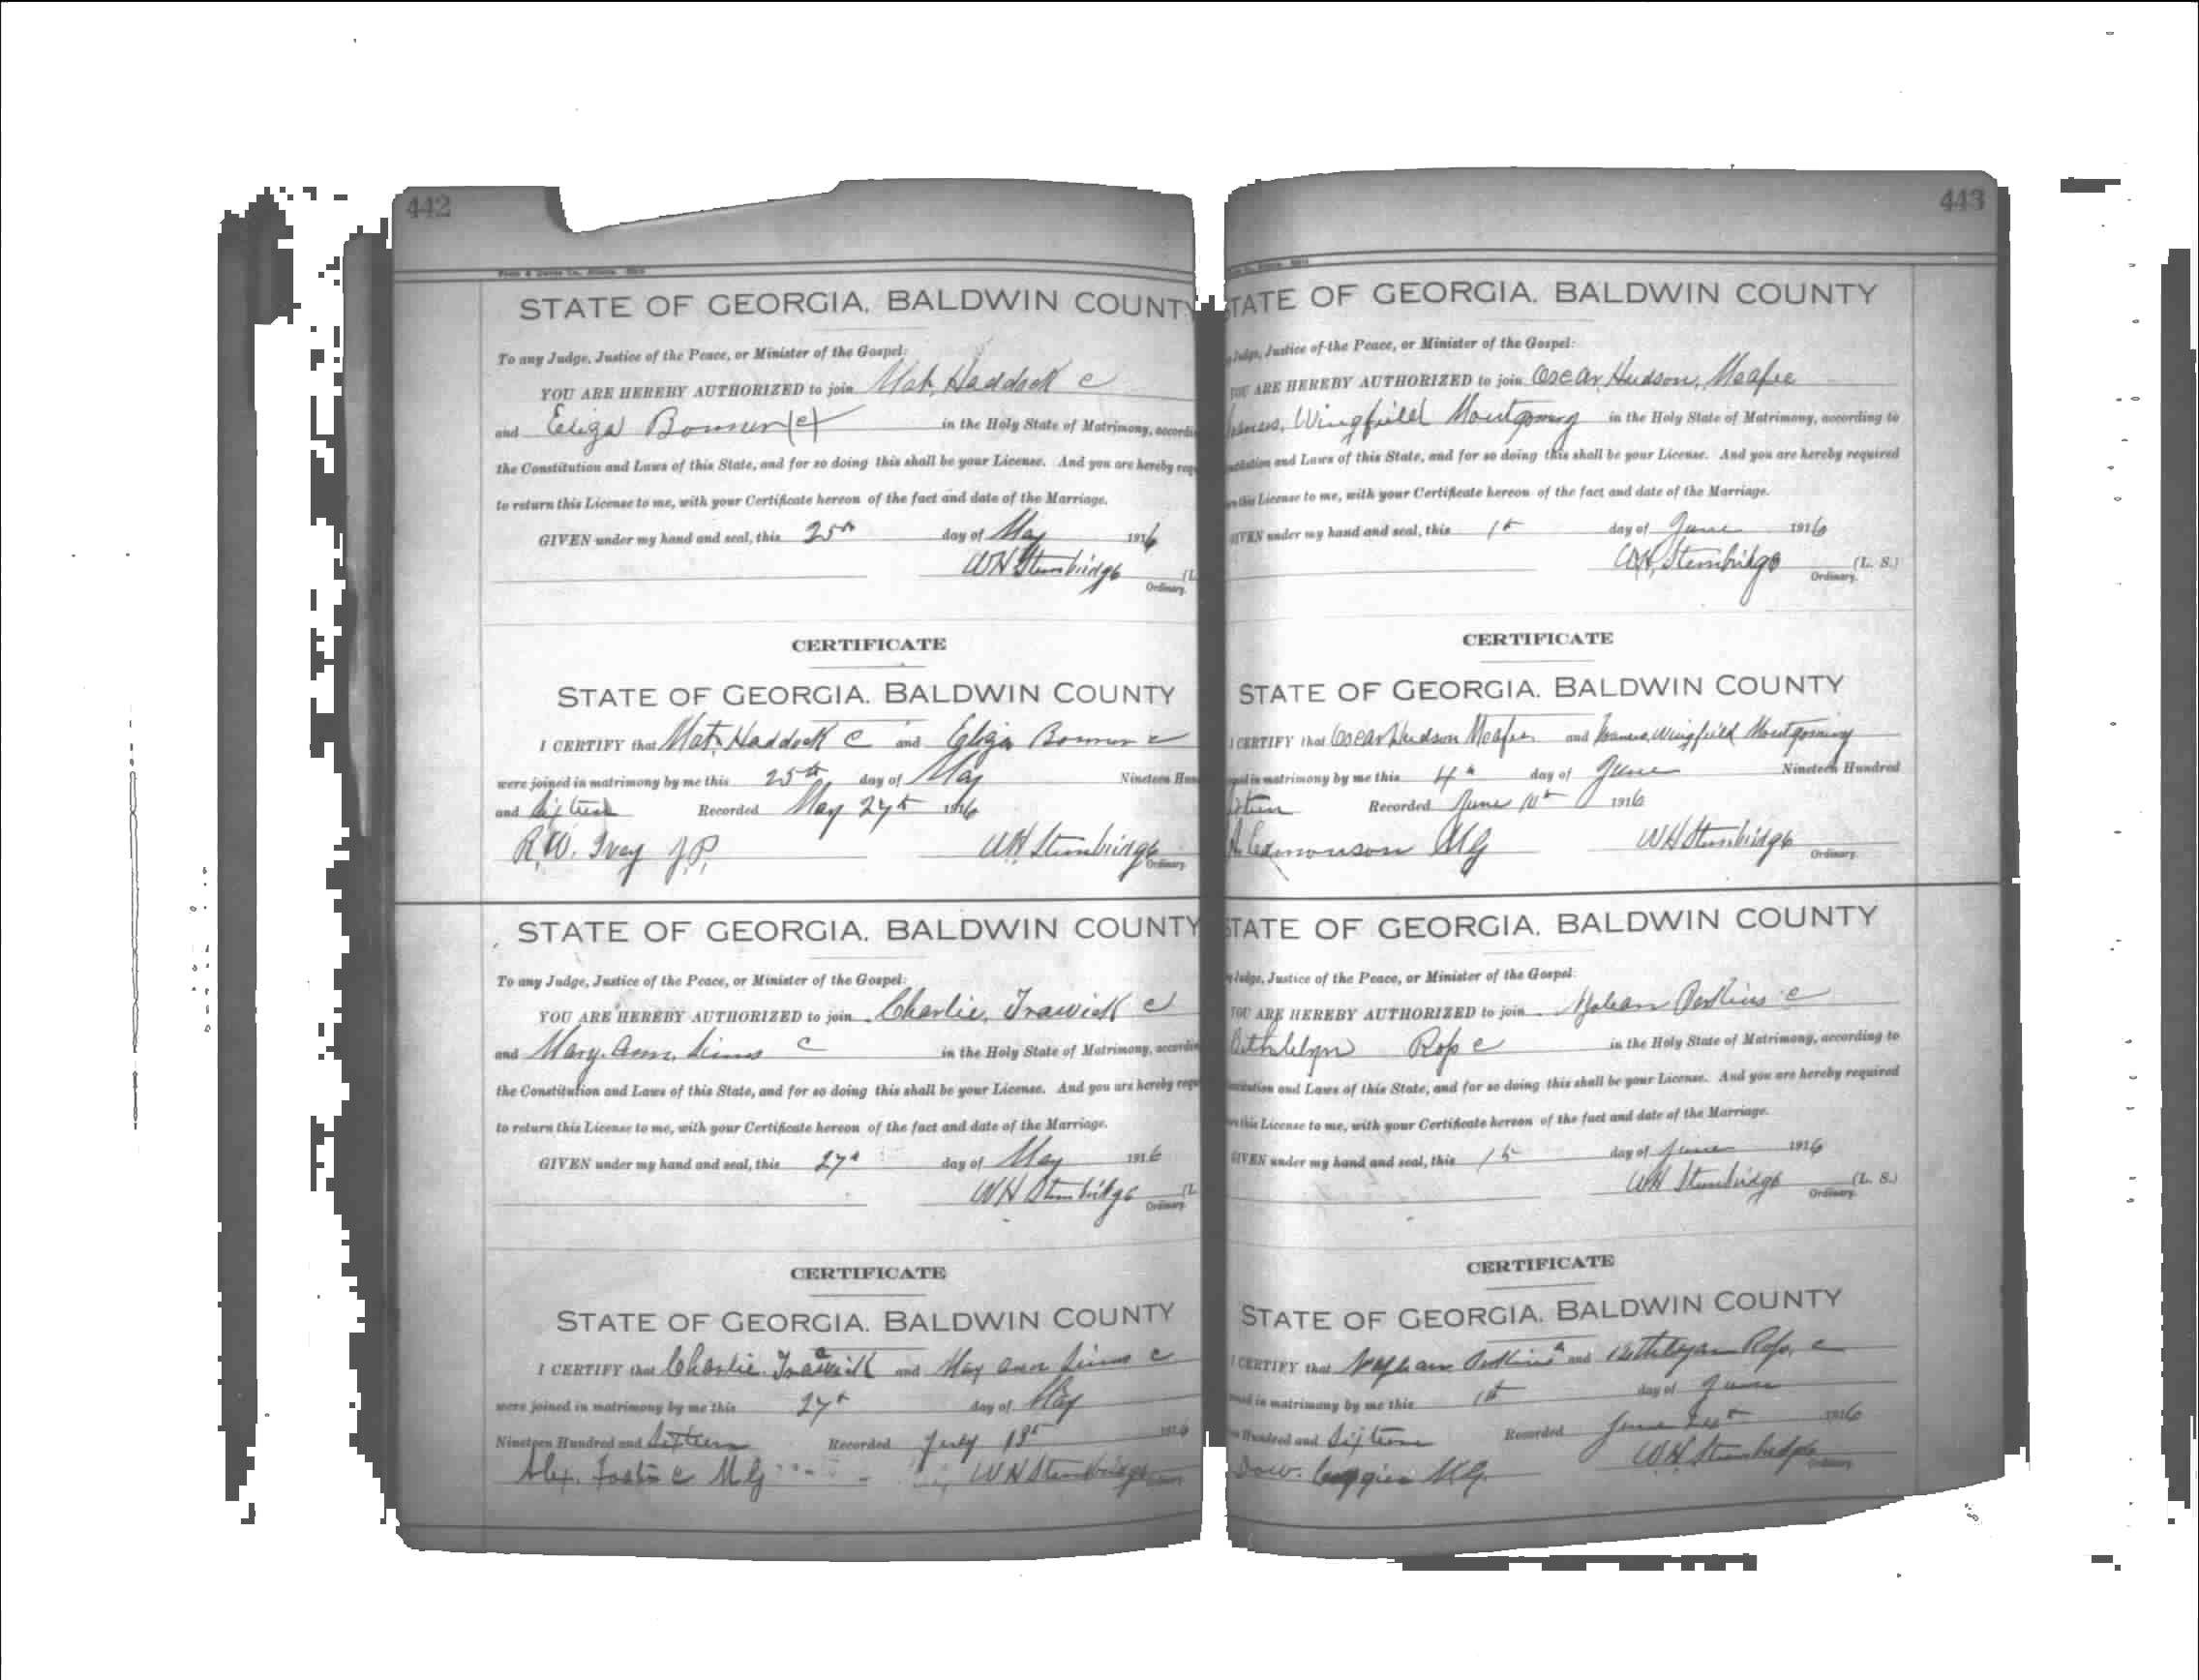 442
STATE OF GEORGIA. BALDWIN COUNTY
To any Judge, Justice of the Peace, or Minister of the Gospel:
YOU ARE HEREBY AUTHORIZED to join Mat, Haddock c
and Eliga Bonner (c) in the Holy State of Matrimony, accordi
the Constitution and Laws of this State, and for so doing this shall be your License. And you are hereby requ
to return this License to me, with your Certificate hereon of the fact and date of the Marriage.
GIVEN under my hand and seal, this 25th day of May 1916
WH Stembridge (L
Ordinary.
CERTIFICATE
STATE OF GEORGIA. BALDWIN COUNTY
I CERTIFY that Mat, Haddock c and Eliga Bonner c
were joined in matrimony by me this 25th day of May Nineteen Hun
and Sixteen Recorded May 27th 1916
R.W. Ivey J.P. WH Stembridge
Ordinary.
STATE OF GEORGIA. BALDWIN COUNTY
To any Judge, Justice of the Peace, or Minister of the Gospel:
YOU ARE HEREBY AUTHORIZED to join Charlie, Trawick c
and Mary. Ann, Sims c in the Holy State of Matrimony, accordin
the Constitution and Laws of this State, and for so doing this shall be your License. And you are hereby requ
to return this License to me, with your Certificate hereon of the fact and date of the Marriage.
GIVEN under my hand and seal, this 27th day of May 1916
WH Stembridge (L
Ordinary.
CERTIFICATE
STATE OF GEORGIA. BALDWIN COUNTY
I CERTIFY that Charlie. Trawick c and May Ann Sims c
were joined in matrimony by me this 27th day of May
Nineteen Hundred and Sixteen Recorded July 1916
Alex. c M.G WH Stembridge
443
STATE OF GEORGIA. BALDWIN COUNTY
Judge, Justice of the Peace, or Minister of the Gospel:
YOU ARE HEREBY AUTHORIZED to join Oscar, Hudson, Meafee
Wingfield Montgomery in the Holy State of Matrimony, according to
and Laws of this State, and for so doing this shall be your License. And you are hereby required
this License to me, with your Certificate hereon of the fact and date of the Marriage.
GIVEN under my hand and seal, this 1st day of June 1916
W.H. Stembridge (L. S.)
Ordinary.
CERTIFICATE
STATE OF GEORGIA. BALDWIN COUNTY
I CERTIFY that Oscar Hudson Meafee and Frances, Wingfield Montgomery
in matrimony by me this 4th day of June Nineteen Hundred
Recorded June 1916
MG WH Stembridge
Ordinary.
STATE OF GEORGIA. BALDWIN COUNTY
Judge, Justice of the Peace, or Minister of the Gospel:
YOU ARE HEREBY AUTHORIZED to join Perkins c
c in the Holy State of Matrimony, according to
and Laws of this State, and for so doing this shall be your License. And you are hereby required
this License to me, with your Certificate hereon of the fact and date of the Marriage.
GIVEN under my hand and seal, this 1st day of June 1916
WH Stembridge (L. S.)
Ordinary.
CERTIFICATE
STATE OF GEORGIA. BALDWIN COUNTY
I CERTIFY that Perkins and c
in matrimony by me this 1st day of June
Hundred and Sixteen Recorded June 1916
M.G. W.H Stembridge